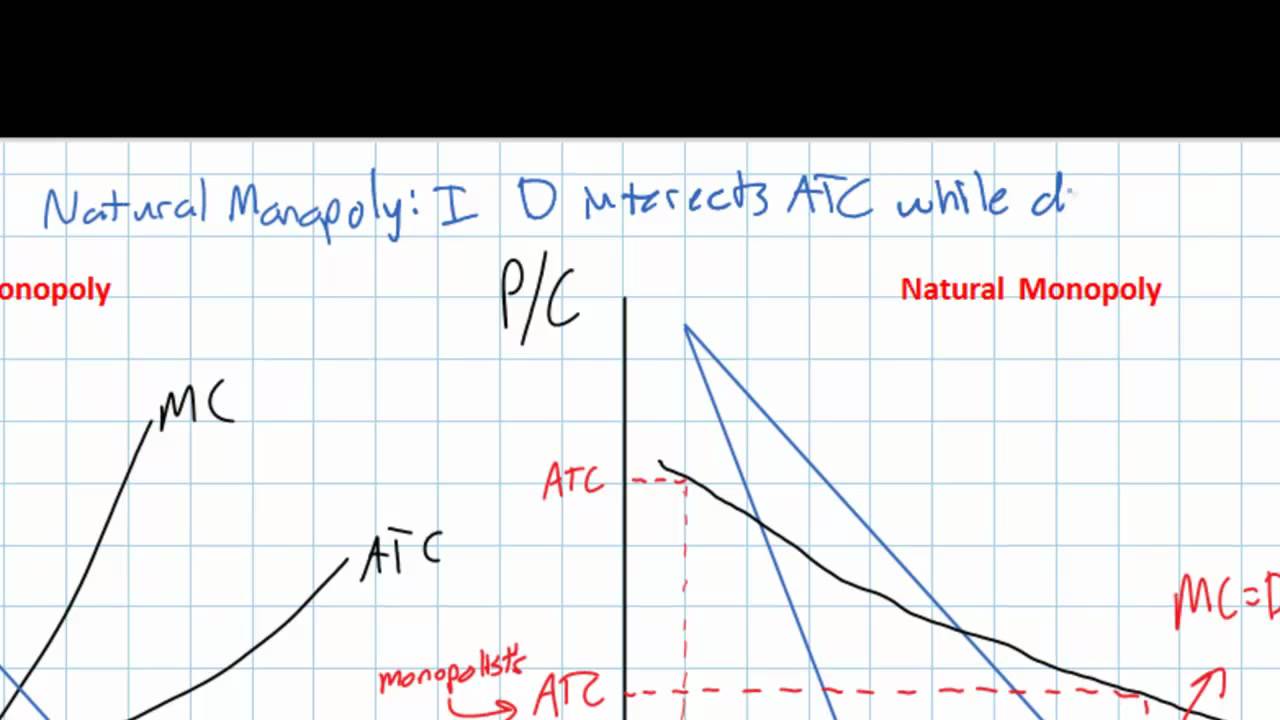 Natural Manapoly: I D intersects ATC while d
onopoly
P/C
Natural Monopoly
MC
ATC
ATC
MC=D
monopolists
ATC